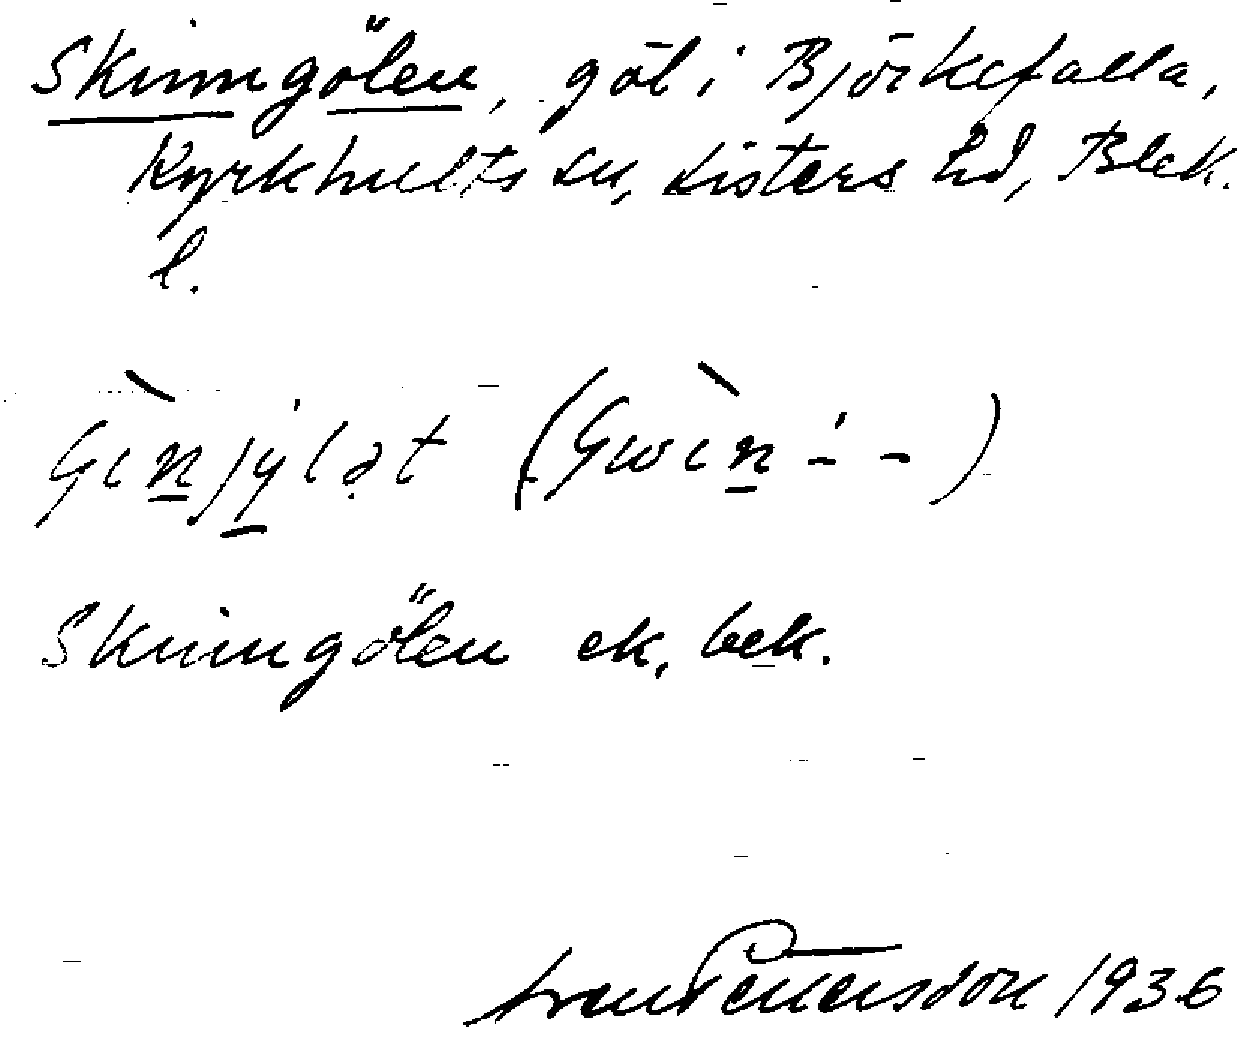 Skinngölen, göl i Björkefalla,
Kyrkhults sn, Listers hd, Blek.
l.
Skinngölen ek. bek.
Pettersson 1936